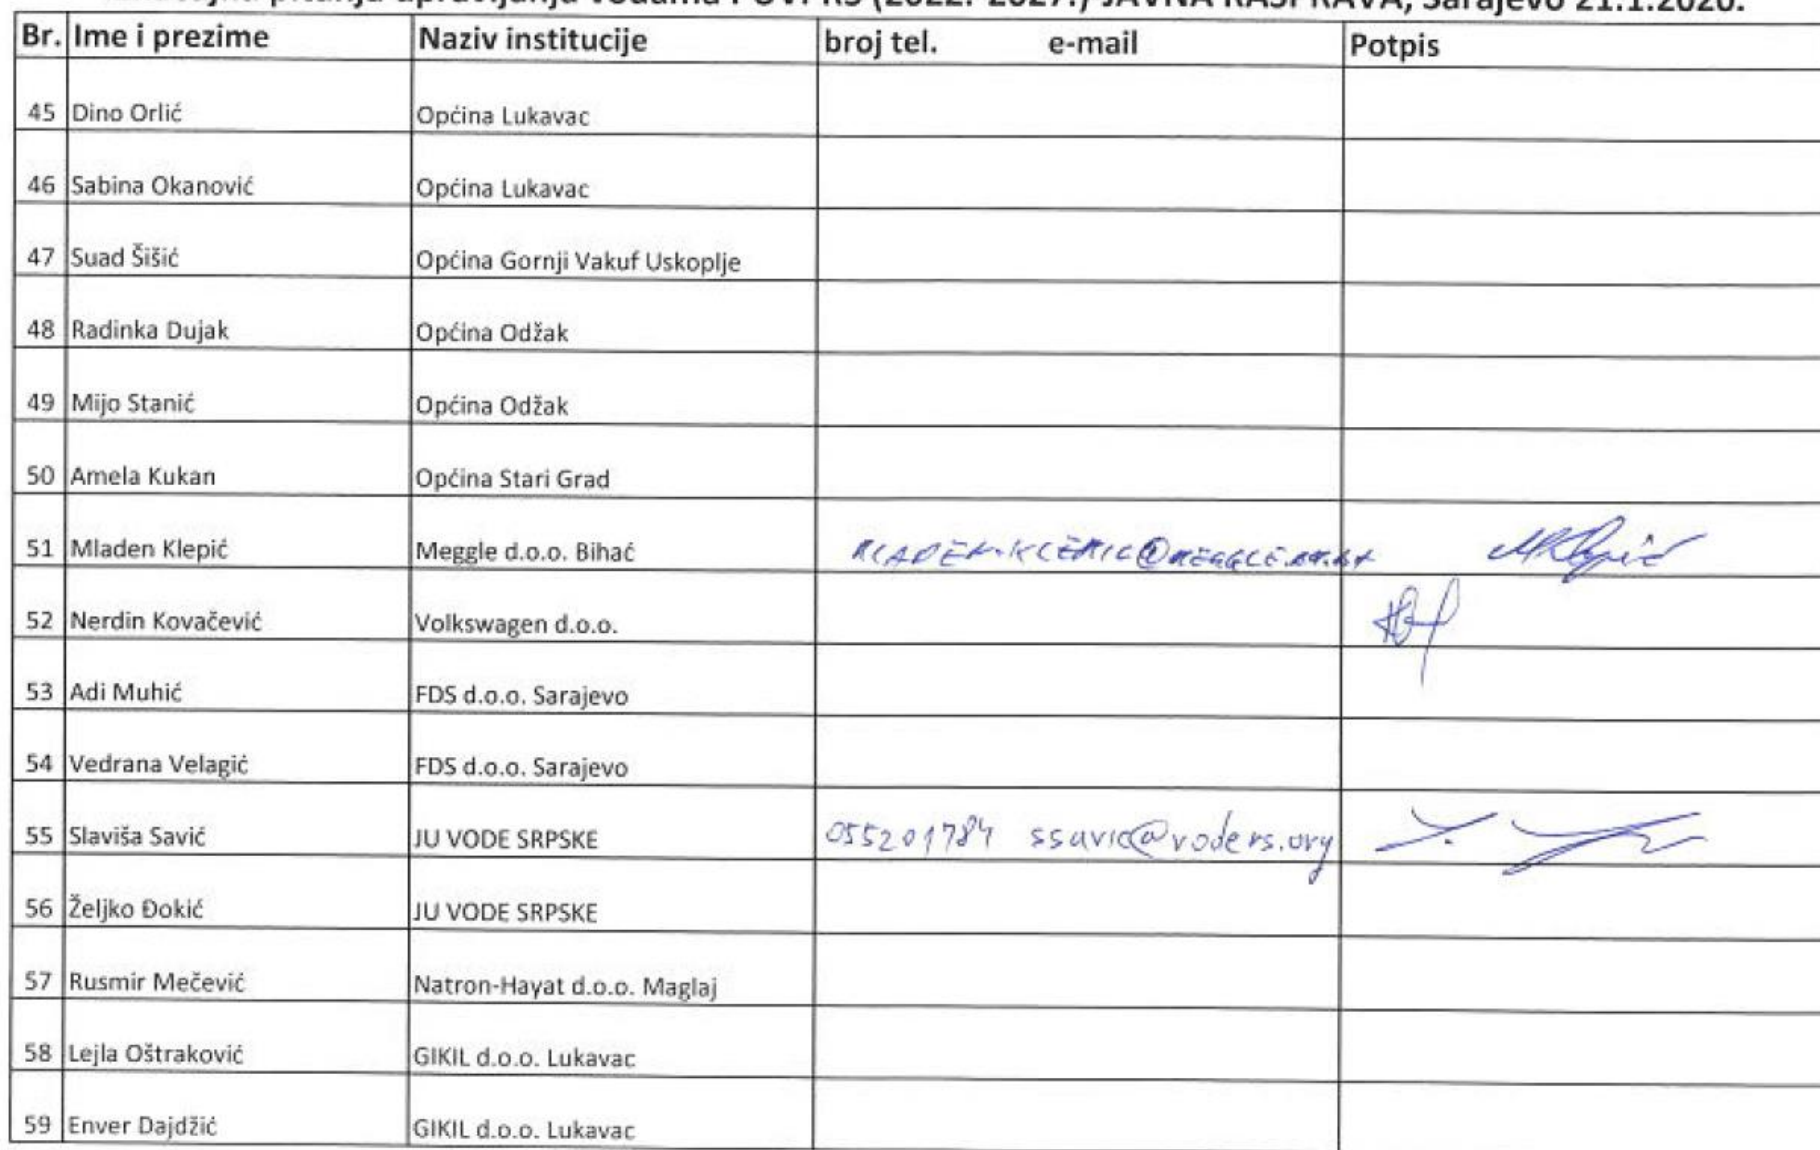 pitanja upravljanja vodama i UVP RS (2022.-2027.) JAVNA RASPRAVA, Sarajevo 21.1.2020.
Br. Ime i prezime Naziv institucije broj tel. e-mail Potpis
45 Dino Orlić Općina Lukavac
46 Sabina Okanović Općina Lukavac
47 Suad Šišić Općina Gornji Vakuf Uskoplje
48 Radinka Dujak Općina Odžak
49 Mijo Stanić Općina Odžak
50 Amela Kukan Općina Stari Grad
51 Mladen Klepić Meggle d.o.o. Bihać
52 Nerdin Kovačević Volkswagen d.o.o.
53 Adi Muhić FDS d.o.o. Sarajevo
54 Vedrana Velagić FDS d.o.o. Sarajevo
55 Slaviša Savić JU VODE SRPSKE 055201784 ssavic@voders.org
56 Željko Đokić JU VODE SRPSKE
57 Rusmir Mečević Natron-Hayat d.o.o. Maglaj
58 Lejla Oštraković GIKIL d.o.o. Lukavac
59 Enver Dajdžić GIKIL d.o.o. Lukavac